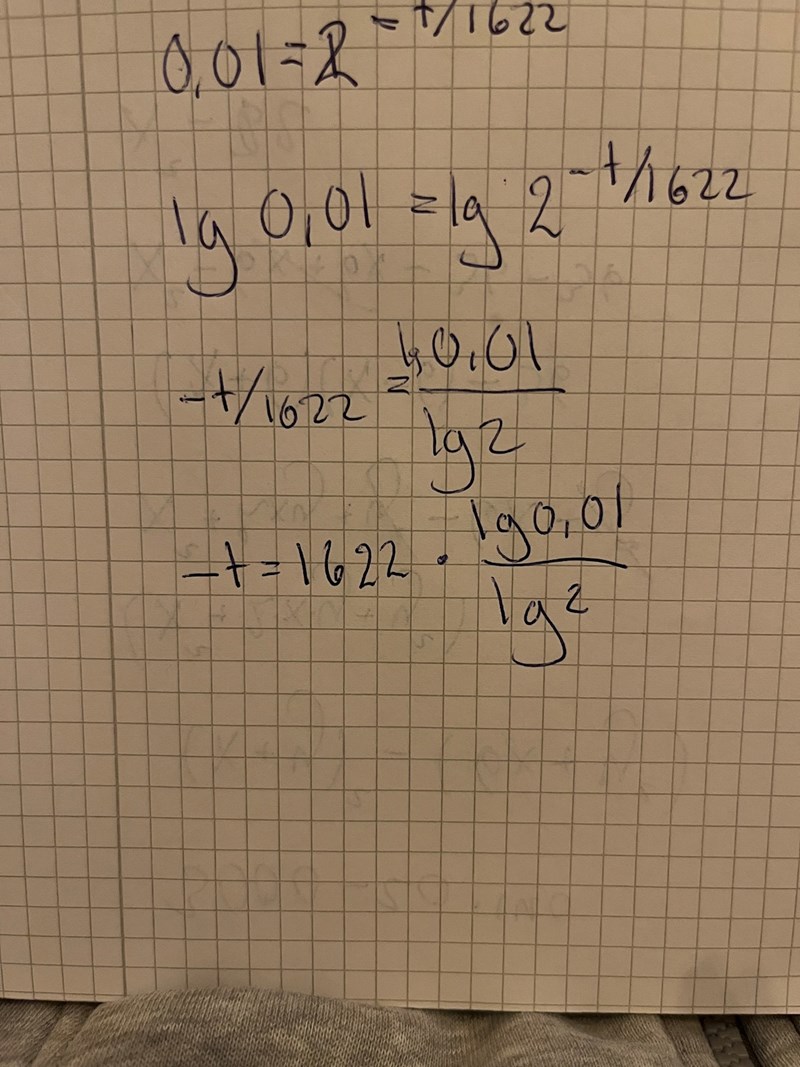 0,01=2^-t/1622
lg 0,01 = lg 2^-t/1622
-t/1622 = lg 0,01 / lg 2
-t = 1622 · lg 0,01 / lg 2